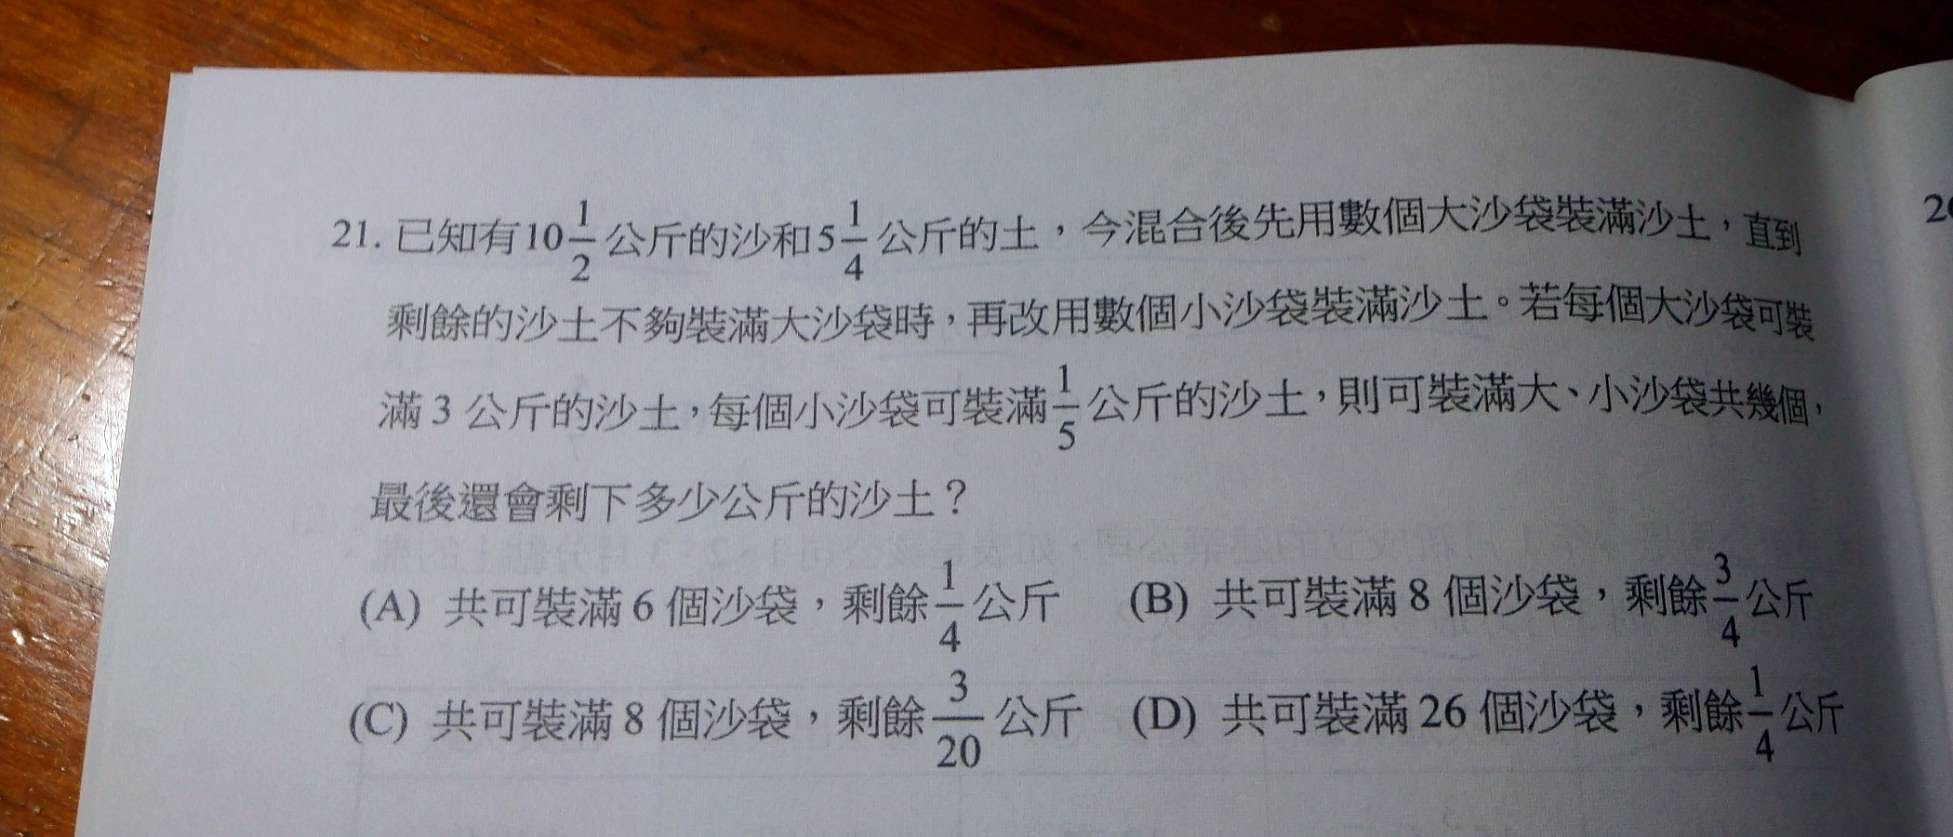 21. 已知有10 1/2 公斤的沙和5 1/4 公斤的土，今混合後先用數個大沙袋裝滿沙土，直到
剩餘的沙土不夠裝滿大沙袋時，再改用數個小沙袋裝滿沙土。若每個大沙袋可裝
滿 3 公斤的沙土，每個小沙袋可裝滿 1/5 公斤的沙土，則可裝滿大、小沙袋共幾個，
最後還會剩下多少公斤的沙土？
(A) 共可裝滿 6 個沙袋，剩餘 1/4 公斤 (B) 共可裝滿 8 個沙袋，剩餘 3/4 公斤
(C) 共可裝滿 8 個沙袋，剩餘 3/20 公斤 (D) 共可裝滿 26 個沙袋，剩餘 1/4 公斤